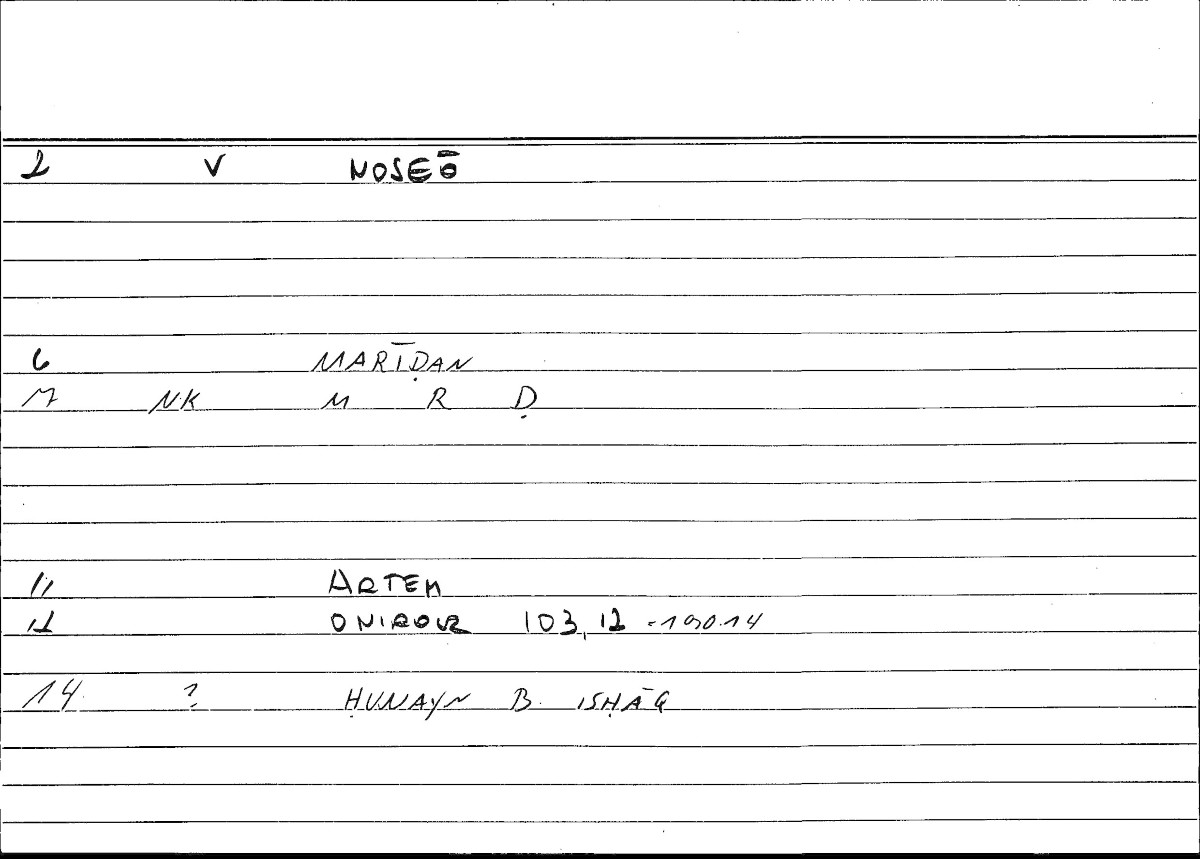 2 V NOSEŌ
6 MARĪḌAN
7 NK M R Ḍ
11 ARTEM
12 ONIROCR 103,12 - 190.14
14 ? ḤUNAYN B. ISḤĀQ